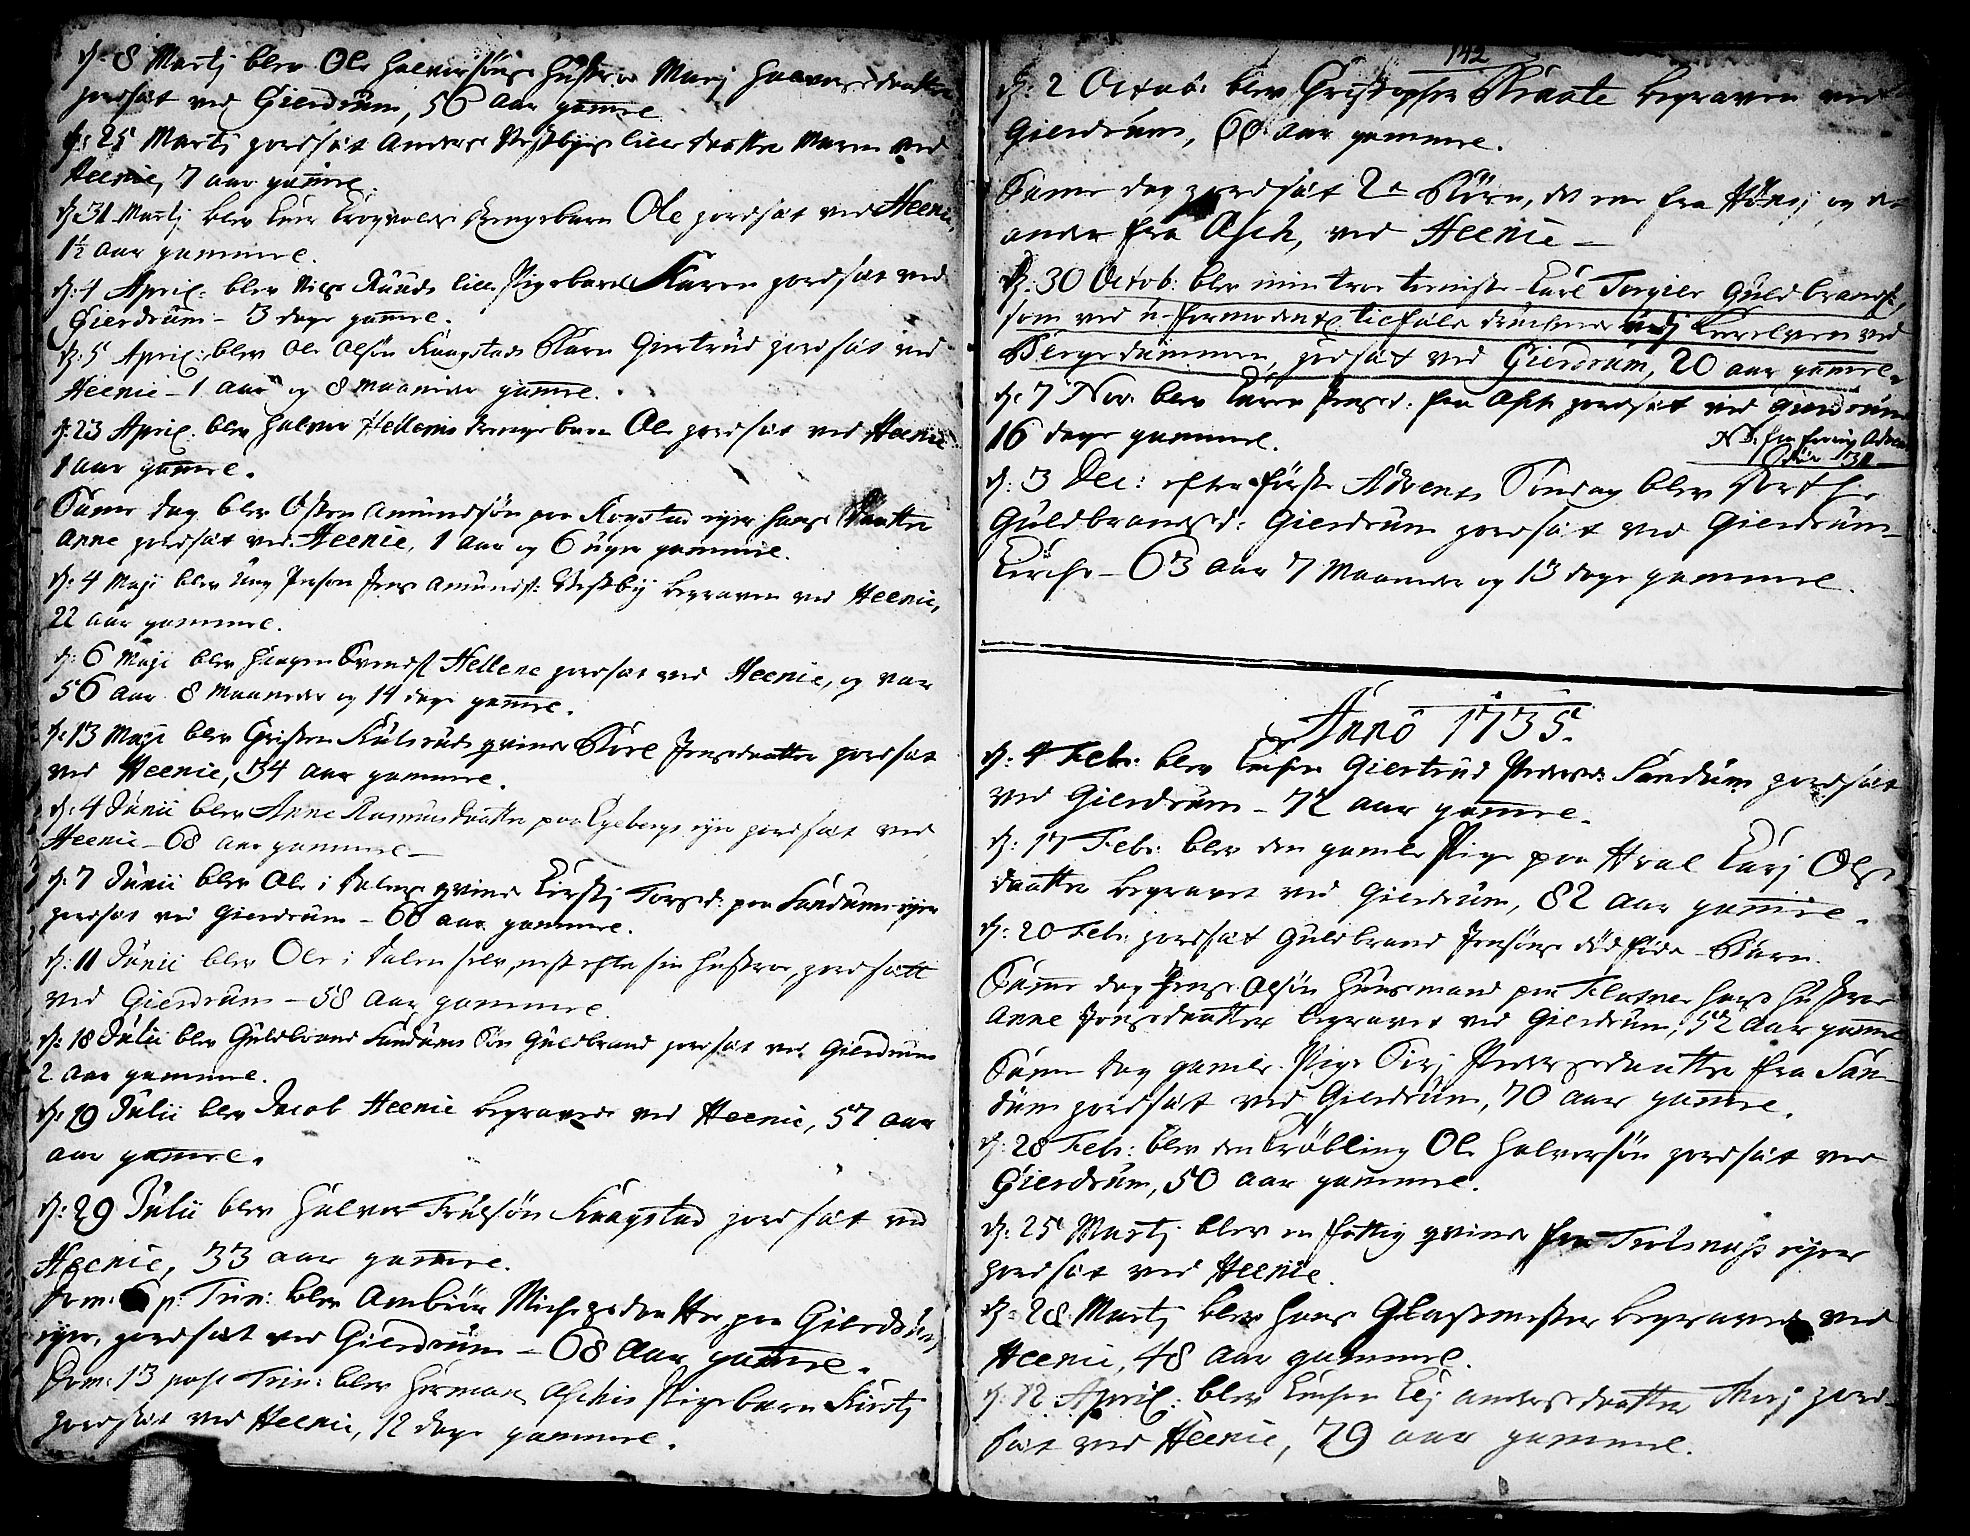 d: 8 Martj blev Ole Halvorsøns Hustroe Marj Haavorsdaatter
jordsat ved Gierdrum, 56 aar gammel
d: 25 Martj jordsat Anders Vestbyes lille daatter Maren ved
Heenie, 7 aar gammel.
d: 31 Martj blev Drengebarn Ole jordsat ved Heenie,
1½ aar gammel.
d: 4 April: blev Niels Ruuds lille Pigebarn Karen jordsat ved
Gierdrum – 3 dage gammel.
d: 5 April: blev Ole Olsøn Kaagstads Barn Giertrud jordsat ved
Heenie – 1 aar og 8 maaneder gammel.
d: 23 April: blev Halvor Hellens drengebarn Ole jordsat ved Heenie
1 aar gammel.
Samme dag blev Østen Amundsøn paa Kogstad eyer hans daatter
Anne jordsat ved Heenie, 1 aar og 6 uger gammel.
d: 4 Maji blev Ung Person Jens Amunds: Vestbÿ begraven ved Heenie,
22 aar gammel.
d: 6 Maji blev Haagen Svends: Hellene jordsat ved Heenie, og var
56 aar 8 maaneder og 14 dage gammel.
d: 13 Maji blev Christen Kulsruds qvinde Børe Jensdaatter jordsat
ved Heenie, 34 aar gammel.
d: 4 Junii blev Anne Rasmusdaatter paa Egebergs eye jordsat ved
Heenie – 68 aar gammel –
d: 7 Junii blev Ole i Dalens qvinde Kirstj Torsd: paa Sandums eye
jordsat ved Gierdrum – 66 aar gammel.
d: 11 Junii blev Ole i Dalen selv, nest efter sin Hustroe, jordsatt
ved Gierdrum – 58 aar gammel.
d: 18 Julii blev Guldbrand Sandums Søn Guldbrand jordsat ved Gierdrum
2 aar gammel.
d: 19 Julii blev Jacob Heenie begraven ved Heenie, 57 aar
aar gammel.
d: 29 Julii blev Halvor Trulsøn Kaagstad jordsat ved
Heenie, 33 aar gammel.
Dom: 6 p: Trin: blev Anbiør Michelsdaatter paa Gierdrums
eyer, jordsat ved Gierdrum – 68 aar gammel.
Dom: 13 post Trin: blev Herman Aschis Pigebarn Kirstj
jordsat ved Heenie, 12 dage gammel.
142
d: 2 Octob: blev Christopher Skaate begraven ved
Gierdrum, 60 aar gammel.
Samme dag jordsat 2de Børn, det ene fra Hønsj og det
andet fra Asch, ved Heenie –
d: 30 Octob: blev min troe tieniste Karl Torgier Guldbrands:
som ved u-formodentl: tilfælde druchnede udj ved
Bergedammen, jordsat ved Gierdrum, 20 aar gammel.
d: 7 Nov: blev Karen Jensd: fra Asch jordsat ved Gierdrum
16 dage gammel.
d: 3 Dec: efter første Advents Søndag blev Dorthe
Guldbrandsd: Gierdrum jordsat ved Gierdrum
Kirche – 63 aar 7 Maaneder og 13 dage gammel.
Anno 1735.
d: 4 Febr: blev Enchen Giertrud Pedersd: Sandum jordsat
ved Gierdrum – 72 aar gammel.
d: 17 Febr: blev den gamle Pige paa Hval Karj Ols-
daatter begravet ved Gierdrum, 82 aar gammel.
d: 20 Febr: jordsat Guldbrand Jensøns dødfødde Barn.
Samme dag Jens Olsøn Huusmand paa Flatner hans Hustroe
Anne Jensdaatter begravet ved Gierdrum, 52 aar gammel
Samme dag gamle Pige Sirj Pedersdaatter fra San-
dum jordsat ved Gierdrum, 70 aar gammel.
d: 28 Febr: blev den Krøbling Ole Halvorsøn jordsat ved
Gierdrum, 50 aar gammel.
d: 25 Martj blev en fattig qvinde fra eyer
jordsat ved Heenie.
d: 28 Martj blev Hans Glasmester begraved ved
Heenie, 48 aar gammel.
d: 12 April: blev Enchen Elj Andersdaatter jord-
sat ved Heenie, 79 aar gammel.